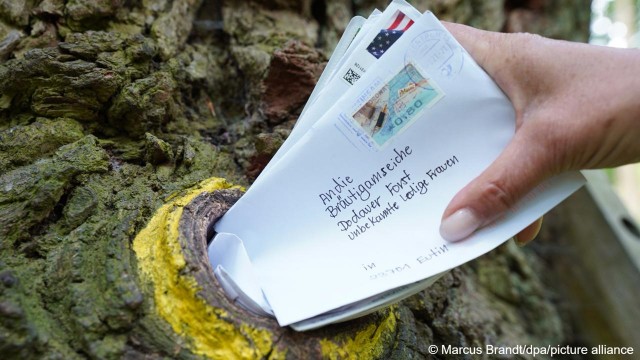 0,80
An die
Bräutigamseiche
Dodauer Forst
unbekannte ledige Frauen
in
Eutin
© Marcus Brandt/dpa/picture alliance